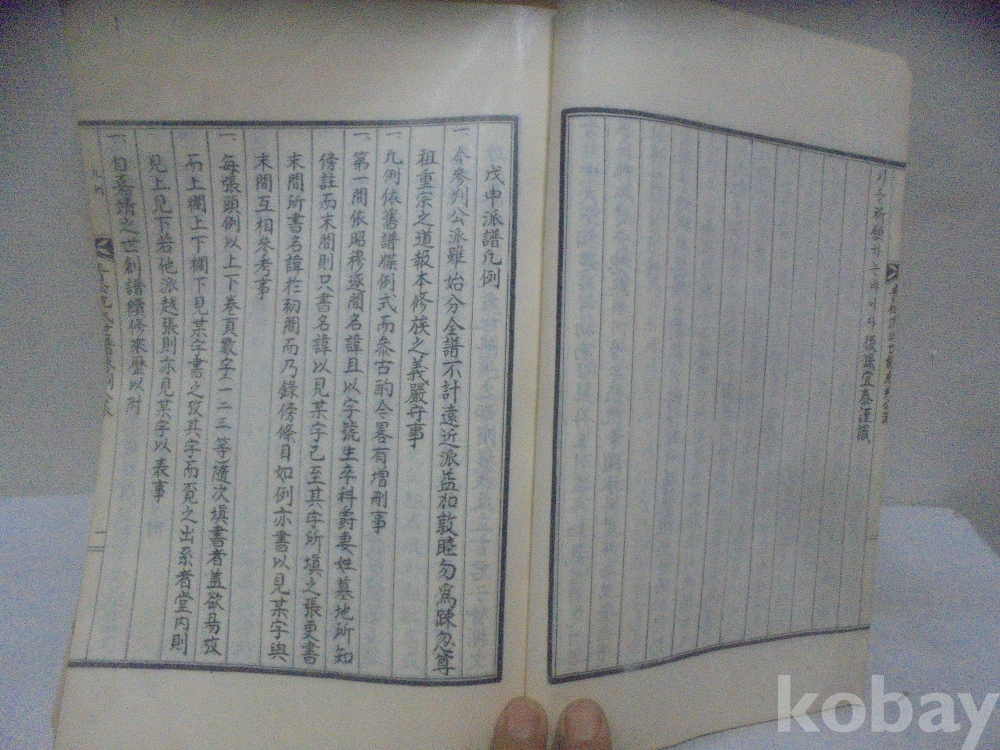 後孫宜泰謹識
戊申派譜凡例
一 參判公派雖始分全譜不計遠近派益加敦睦勿爲踈忽尊
祖重宗之道報本修族之義嚴守事
一 凡例依舊譜牒例式而叅古酌今畧有增刪事
一 第一間依昭穆逐間名諱且以字號生卒科爵妻姓墓地所知
傍註而末間則只書名諱以見某字已至其字所塡之張更書
末間所書名諱於初間而乃錄傍條目如例亦書以見某字與
末間互相參考事
一 每張頭例以上下卷頁數字(一二三等)隨次塡書者盖欲易攷
而上欄上下欄下見某字書之攷其字而覓之出系者堂內則
見上見下若他派越張則亦見某字以表事
一 自嘉靖之世創譜續修來歷以附
kobay